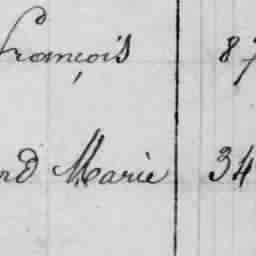 françois 87
nd Marie 34